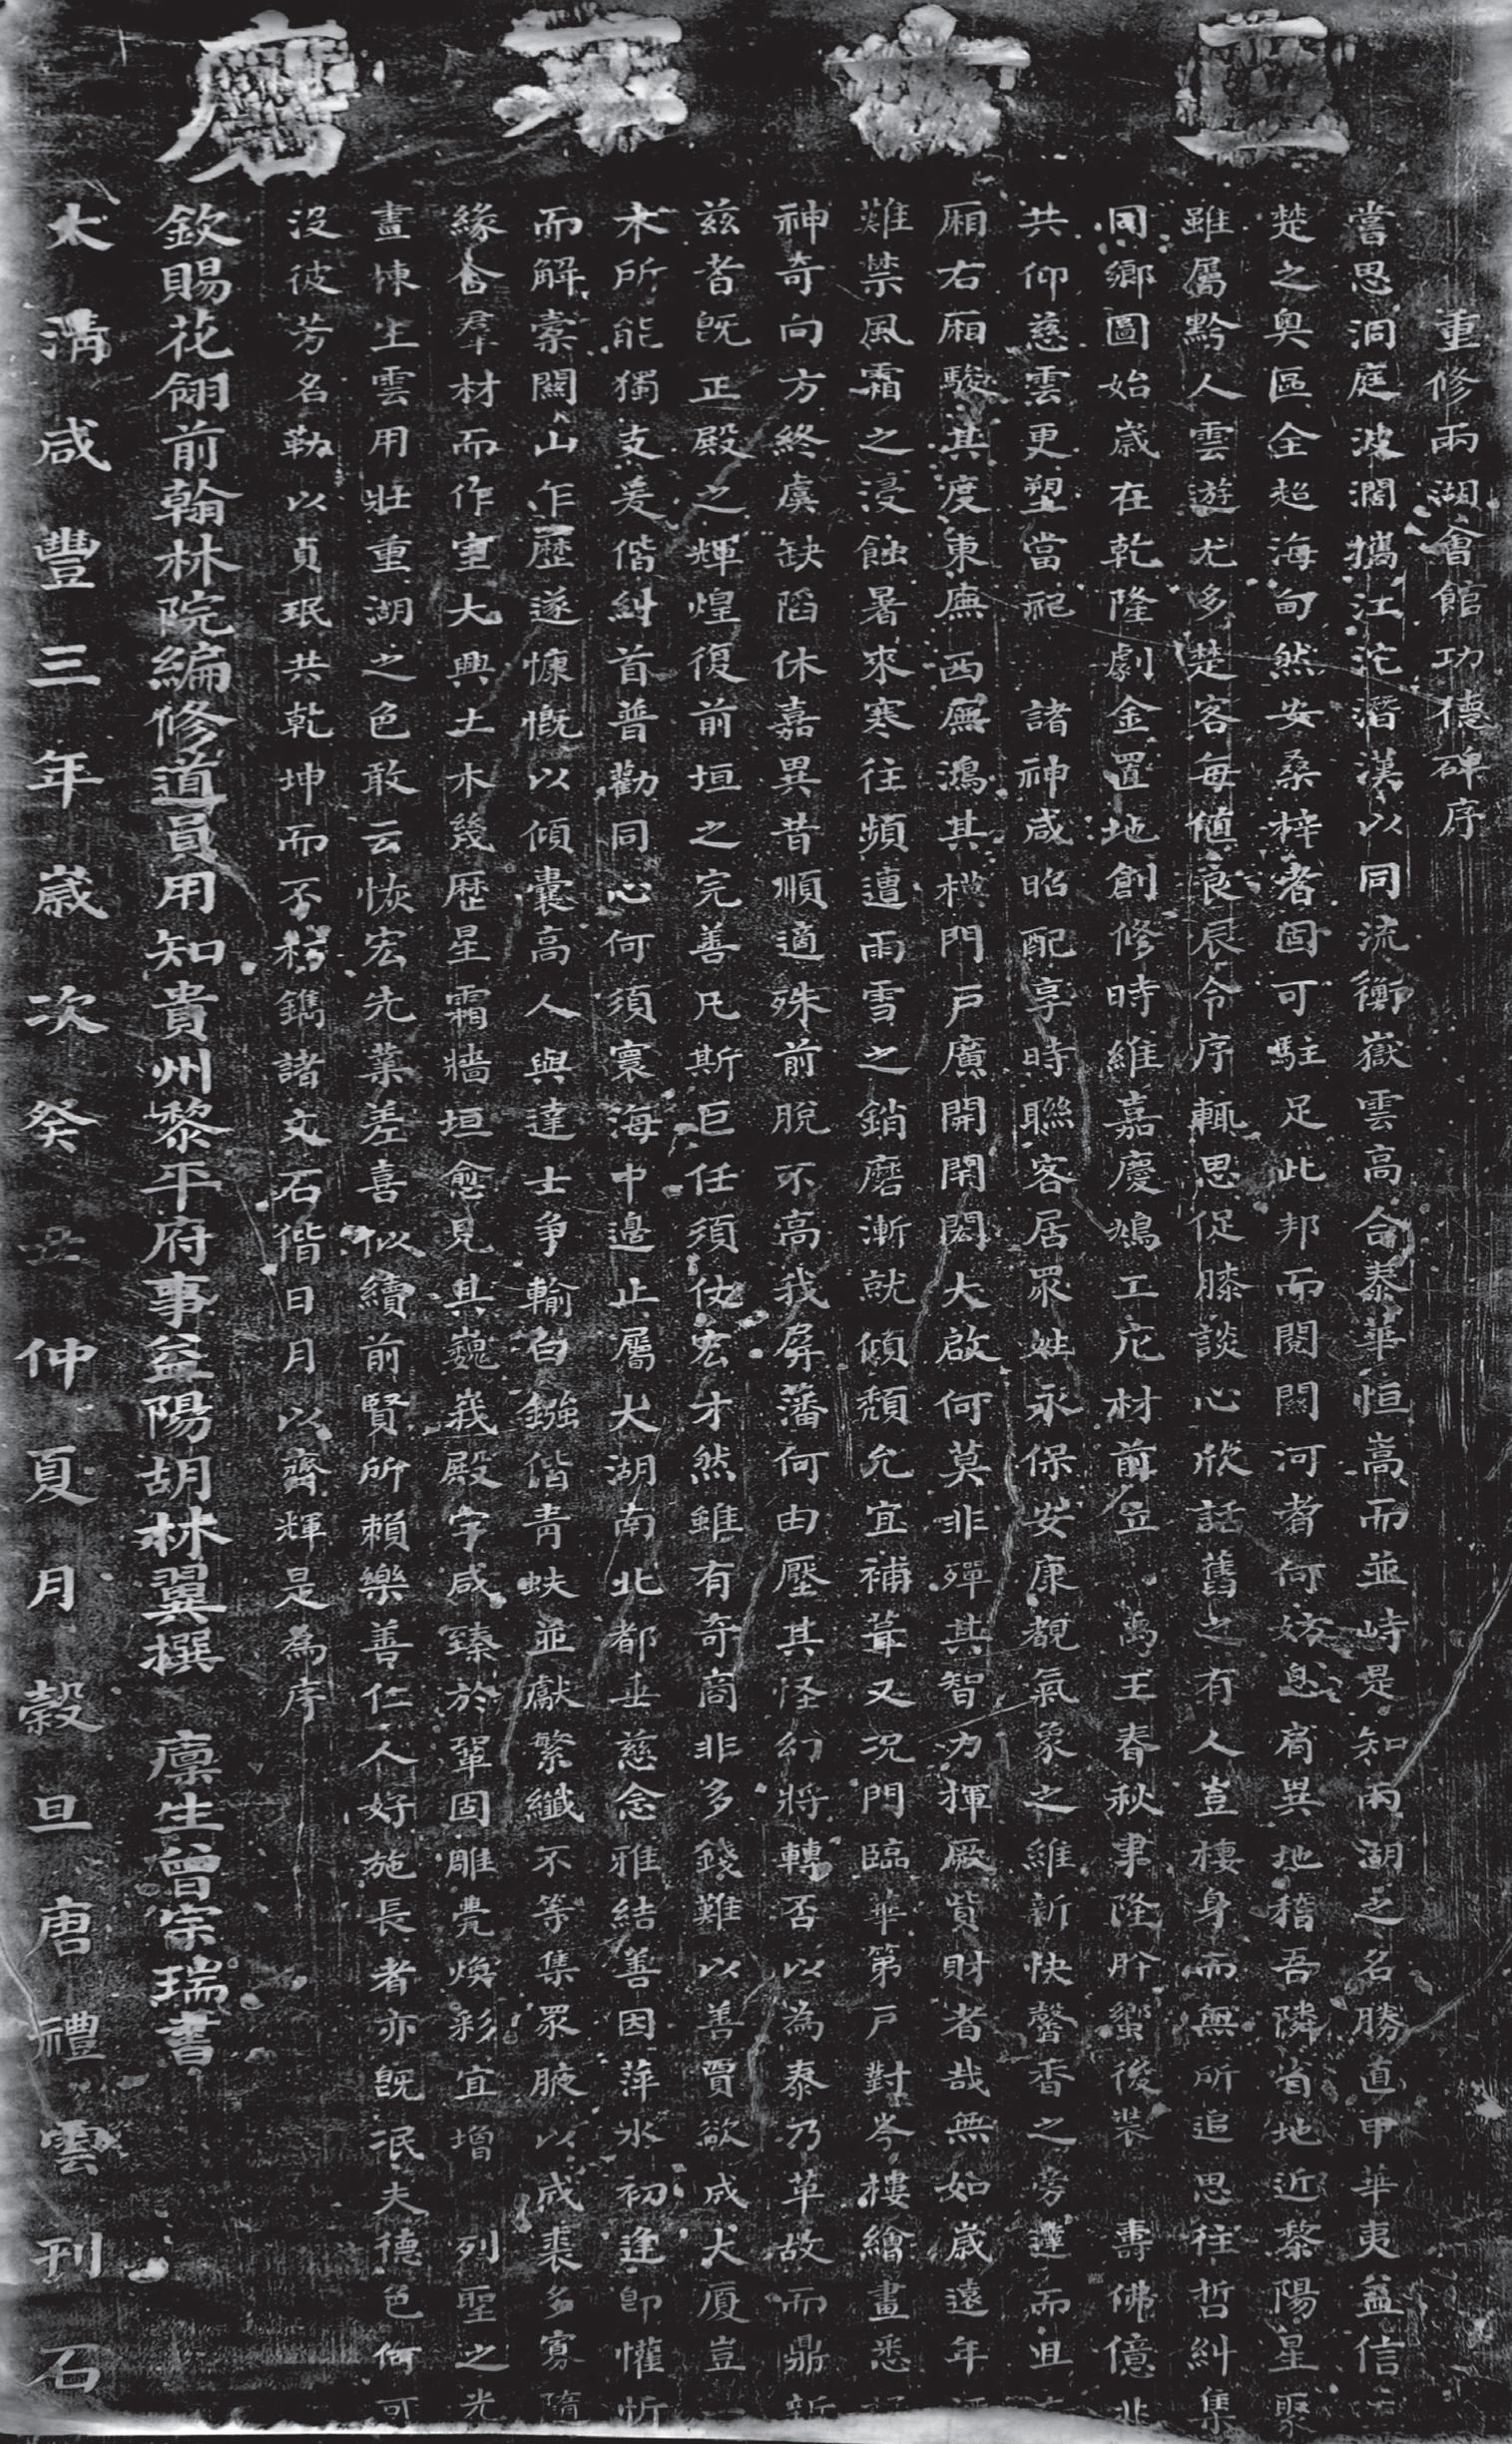 重修兩湖會館功德碑序
嘗思洞庭波濶攜江沱潛漢以同流衡嶽雲高合泰華恒嵩而並峙是知兩湖之名勝直甲華夷益信
楚之奥區全超海甸然安桑梓者固可駐足此邦而閱關河者何妨息肩異地稽吾隣省地近黎陽星聚
雖屬黔人雲遊尤多楚客每值良辰令序輒思促膝談心欣話舊之有人豈棲身而無所追思往哲糾集
同鄉圖始歲在乾隆劇金置地創修時維嘉慶鳩工庀材前立 禹王春秋聿隆肸蠁後裝 壽佛億兆
共仰慈雲更塑當祀 諸神咸昭配享時聯客居眾姓永保安康覩氣象之維新快馨香之旁達而且
廂右廂駿其度東廡西廡鴻其模門戶廣開閈閎大啟何莫非殫其智力揮厥貲財者哉無如歲遠年
難禁風霜之浸蝕暑來寒往頻遭雨雪之銷磨漸就傾頹允宜補葺又況門臨華第戶對岑樓繪畫悉
神奇向方終虞缺陷休嘉異昔順適殊前脫不高我屏藩何由壓其怪幻將轉否以為泰乃革故而鼎新
茲者既正殿之輝煌復前垣之完善凡斯巨任須仗宏才然雖有奇商非多錢難以善賈欲成大厦豈一
木所能獨支爰偕糾首普勸同心何須寰海中邊止屬大湖南北都垂慈念雅結善因萍水初逢即懽忻
而解橐關山乍歷遂慷慨以傾囊高人與達士爭輸白鏹偕青蚨並獻繁纖不等集眾腋以成裘多寡隨
緣合羣材而作室大興土木幾歷星霜牆垣愈見其巍峩殿宇咸臻於鞏固雕甍煥彩宜增 列聖之光
畫棟生雲用壯重湖之色敢云恢宏先業差喜似續前賢所賴樂善仁人好施長者亦既泯夫德色何可
沒彼芳名勒以貞珉共乾坤而不朽鐫諸文石偕日月以齊輝是為序
欽賜花翎前翰林院編修道員用知貴州黎平府事益陽胡林翼撰 廩生曾宗瑞書
大清咸豐三年歲次癸丑仲夏月穀旦唐禮雲刊石